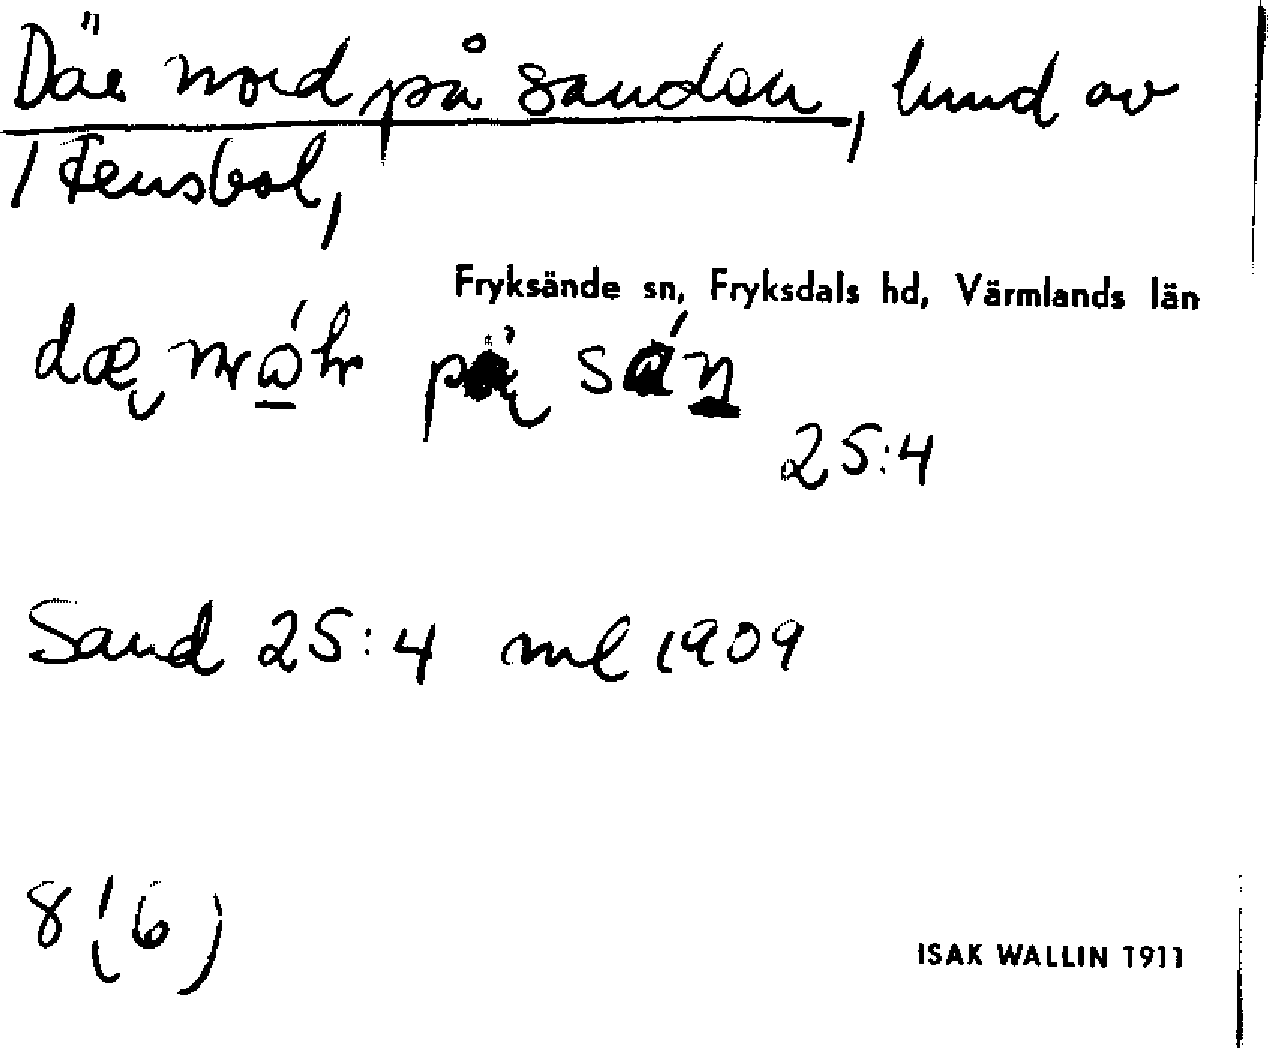 Där nord på sanden, hmd av
Stensbol,
Fryksände sn, Fryksdals hd, Värmlands län
på sán
25:4
Sand 25:4 ml 1909
8 (6)
ISAK WALLIN 1911